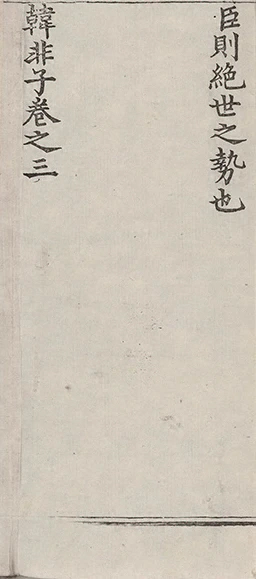 臣則絕世之勢也
韓非子卷之三